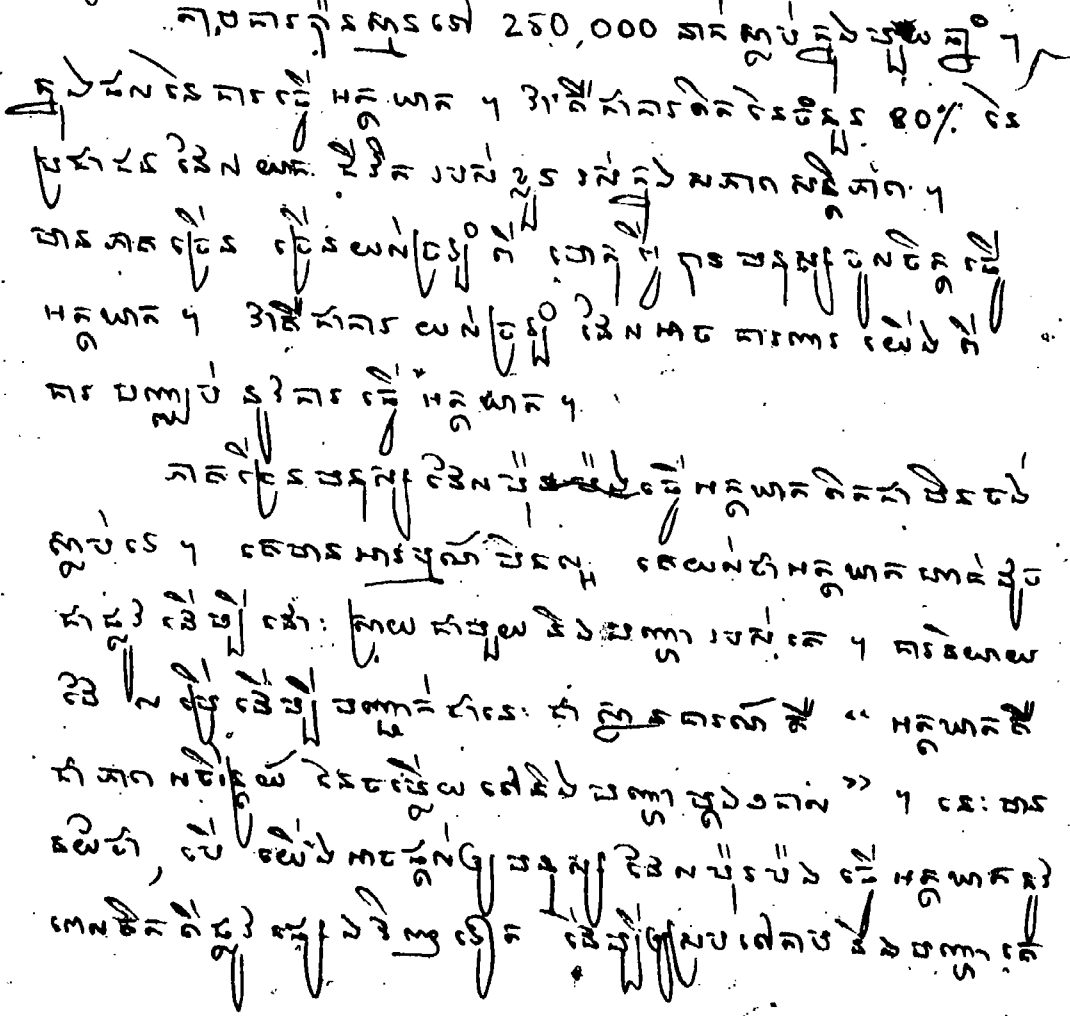 តាមការប៉ាន់ស្មានទៅ 250,000 នាក់ស្លាប់ក្នុងមួយឆ្នាំ ។
ក្នុងផលនៃការធ្វើអត្តឃាត ។ វាគឺជាការពិតនៃចំនួន 80% នៃ
ប្រជាជនដែលយកជីវិតរបស់ខ្លួនរស់ក្នុងសភាព
មានភាគច្រើន ច្រើនយល់ច្រឡំពី ហេតុអ្វី បានមនុស្សចូលចិត្តធ្វើ
អត្តឃាត ។ វាគឺជាការយល់ច្រឡំដែលអាចការពារយើងពី
ការបញ្ឈប់នូវការធ្វើអត្តឃាត ។
ភាគច្រើនមនុស្សដែលប៉ុនប៉ងធ្វើអត្តឃាតពិតជាមិនចង់
ស្លាប់ទេ ។ គេមានអារម្មណ៍មិនល្អ គេយល់ថាអត្តឃាតហាក់ដូច
ជាផ្លូវដើម្បីដោះស្រាយជាមួយនិងបញ្ហារបស់គេ ។ ការនិយាយ
ដែលប្រើដើម្បីបញ្ជាក់ថានេះជាស្ថានការណ៍គឺ “ អត្តឃាតគឺ
ជាភាពនៃចម្លើយទៅនិងបញ្ហាម្តងៗកាល ” ។ នេះមាន
ន័យថា, បើយើងអាចផ្តល់ឲ្យមនុស្សដែលប៉ុនប៉ងធ្វើអត្តឃាតនូវ
ពេលគិតពីផ្លូវផ្សេងវិញទៀត ដើម្បីឲ្យស្របទៅតាមនិងបញ្ហាគេ